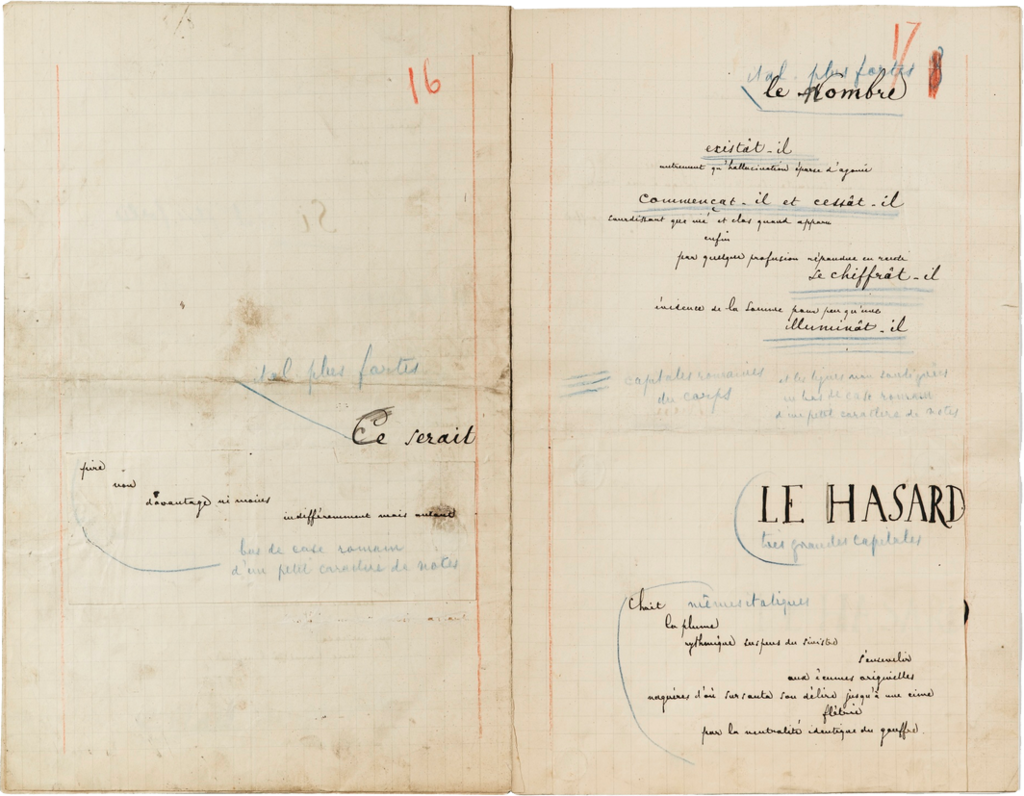 16
ital. plus fortes
Ce serait
pire
non
davantage ni moins
indifféremment mais autant
bas de casse romain
d'un petit caractère de notes
17
ital. plus fortes
le nombre
existât-il
autrement qu'hallucination éparse d'agonie
commençât-il et cessât-il
sourdissant que nié et clos quand apparu
enfin
par quelque profusion répandue en rareté
se chiffrât-il
évidence de la somme pour peu qu'une
illuminât-il
capitales romaines
du corps
et les lignes non soulignées
en bas de casse romain
d'un petit caractère de notes
LE HASARD
très grandes capitales
Choit
mêmes italiques
la plume
rythmique suspens du sinistre
s'ensevelir
aux écumes originelles
naguères d'où sursauta son délire jusqu'à une cime
flétrie
par la neutralité identique du gouffre.